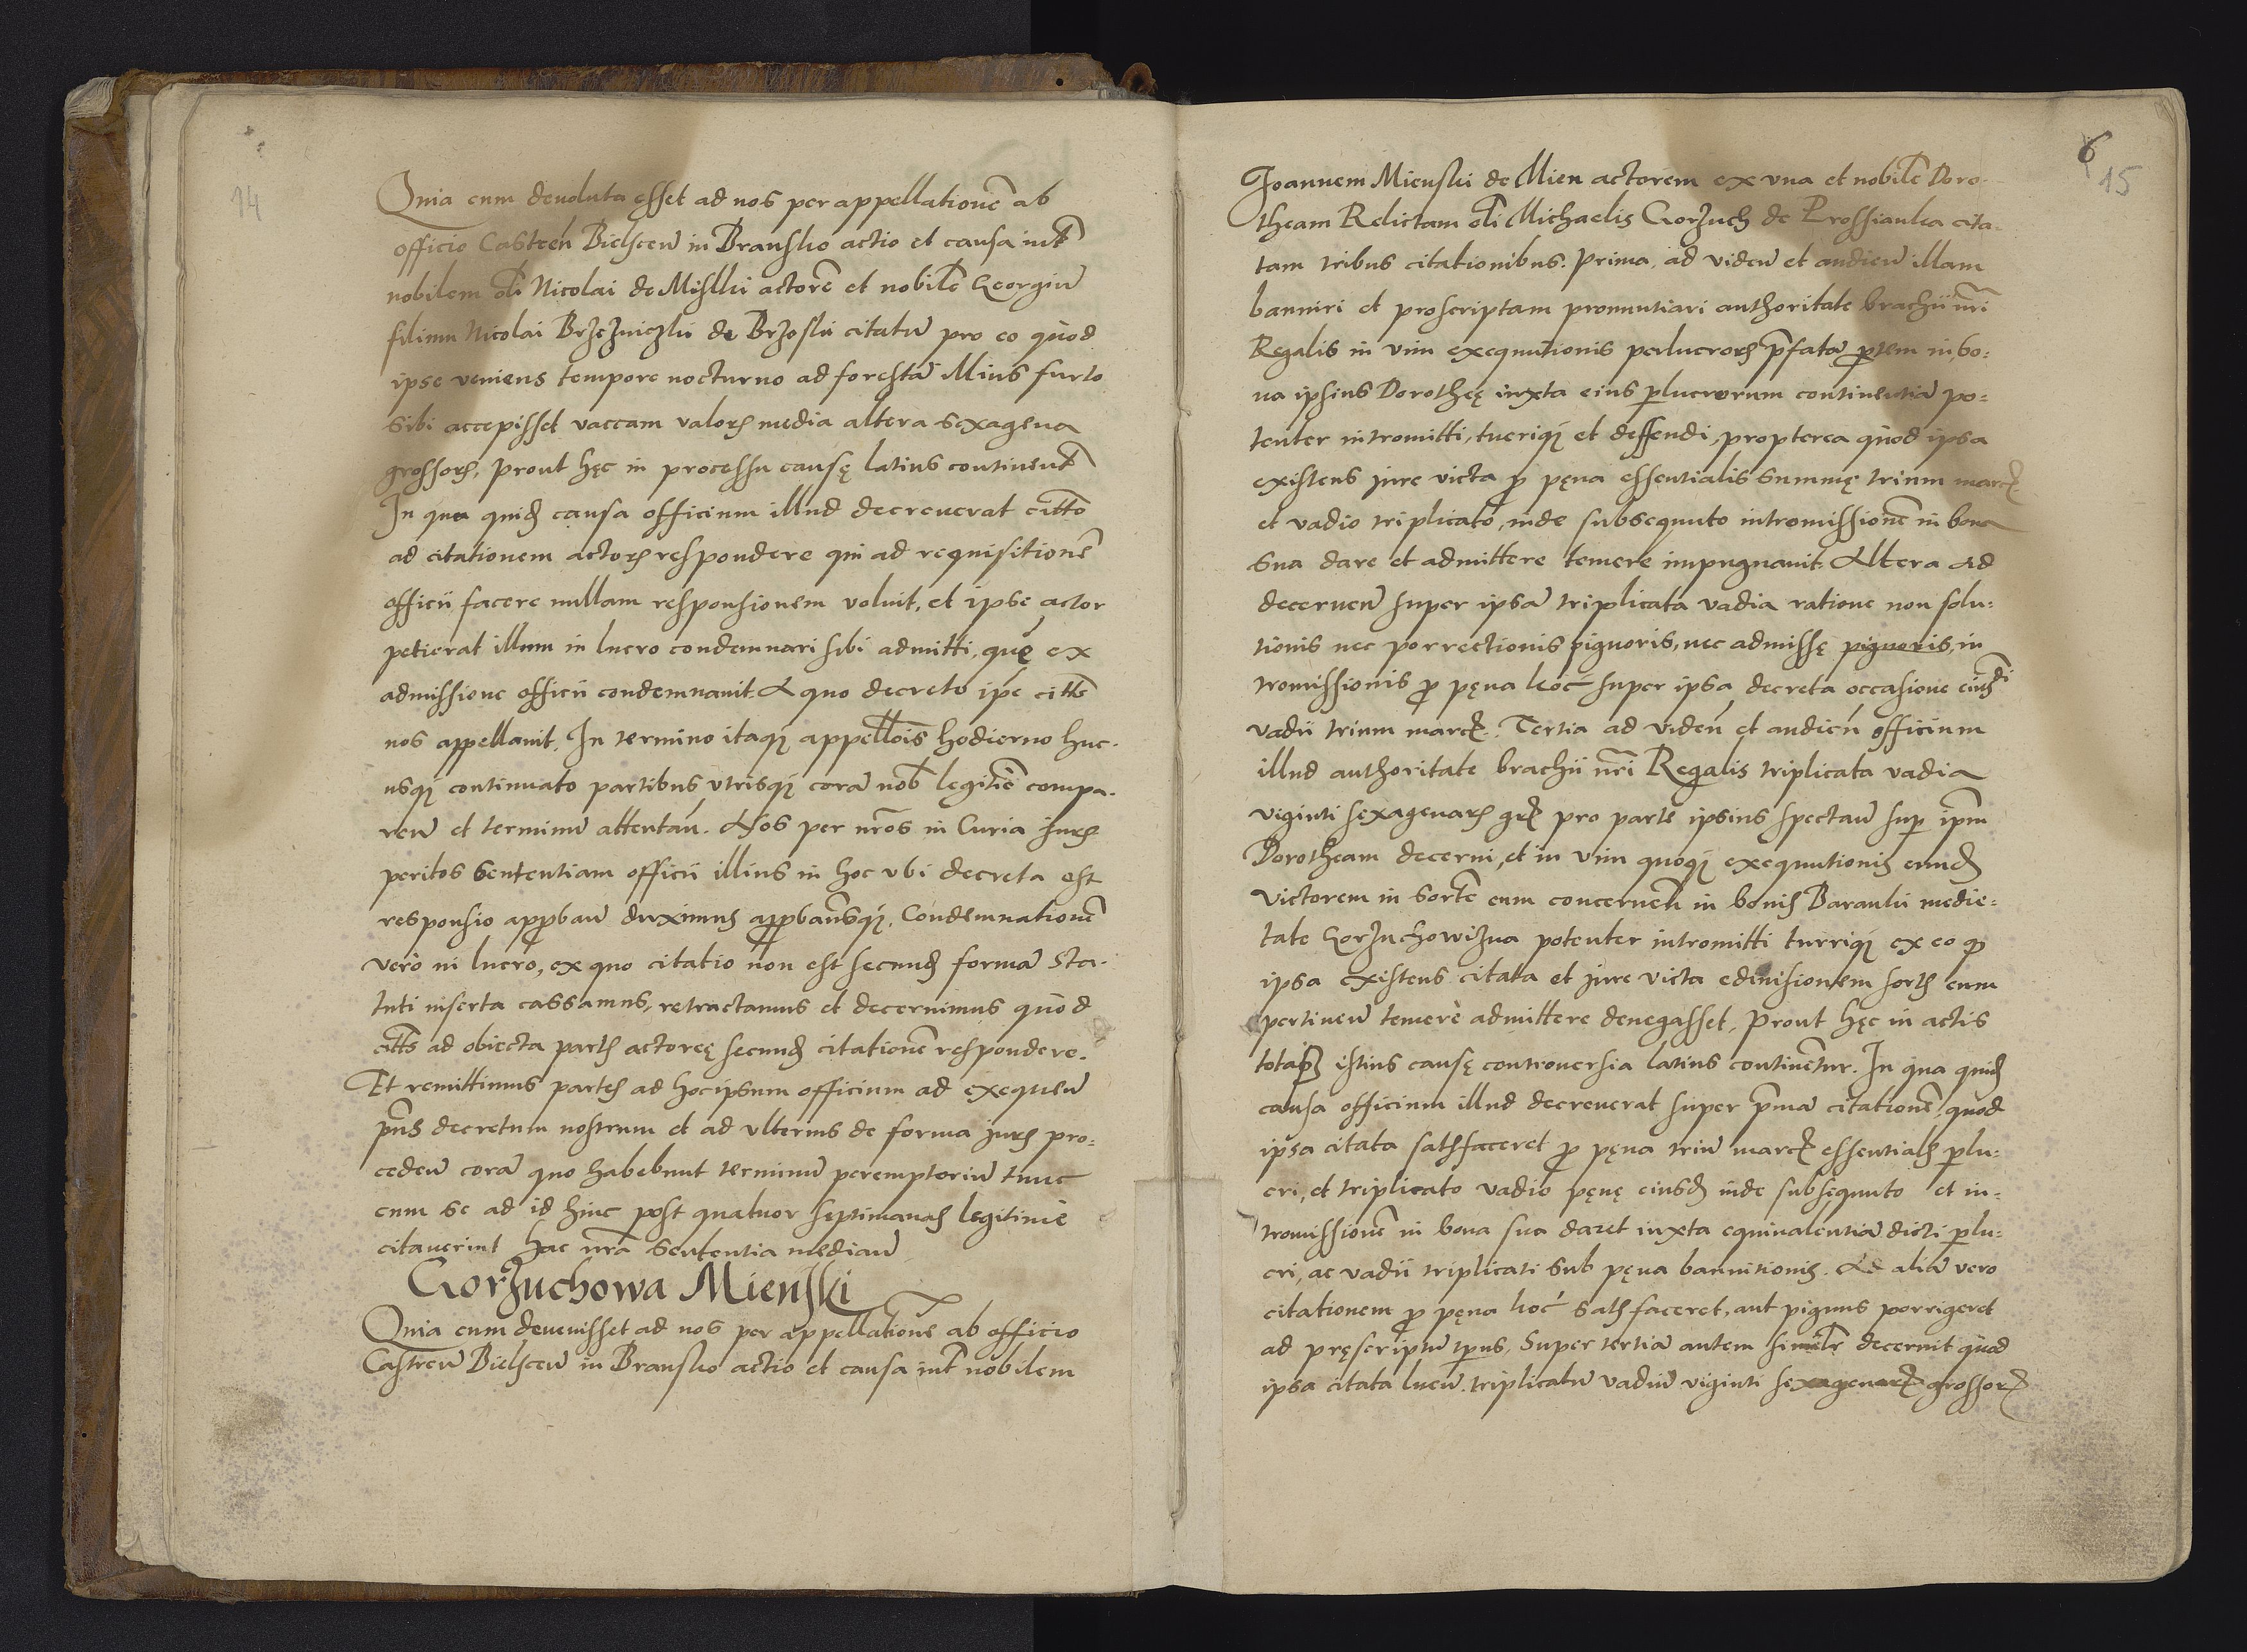 14
Quia cum deuoluta esset ad nos per appellationē ab
officio Castreń Bielsceń in Bransko actio et causa int̃
nobilem oli Nicolai de Miskki actorē et nobilē Georgiū
filium Nicolai Brzezniczki de Brzoski citatū pro eo quod
ipse veniens tempore nocturno ad forestā Mius furto
sibi accepisset vaccam valoris media altera sexagena
grossorꝝ, prout hęc in processu causę latius continent̃
In qua quidē causa officium illud decreuerat cittō
ad citationem actoris respondere qui ad requisitionē
officii facere nullam responsionem voluit, et ipse actor
petierat illum in lucro condemnari sibi admitti, quę ex
admissione officii condemnauit. A quo decreto ipē citts
nos appellauit. In termino itaqꝫ appellōis hodierno huc-
usqꝫ continuato partibus vtrisqꝫ corā nob legitiē compa-
reń et terminū attentań. Nos per nr̄os in Curia juris
peritos sententiam officii illius in hoc vbi decreta est
responsio approbań duximus approbamusqꝫ. Condemnationē
verò in lucro, ex quo citatio non est secundū formā Sta-
tuti inserta cassamus, retractamus et decernimus quòd
citts ad obiecta partis actoreę secundū citationē respondere.
Et remittimus partes ad hoc ipsum officium ad exequeń
pn̄s decretum nostrum et ad vlterius de forma juris pro-
cedeń corā quo habebunt terminū peremptoriū tunc
cum se ad id hinc post quatuor septimanas legitimè
citauerint hac nr̄a sententia mediań
Gorzuchowa Mienski
Quia cum deuenisset ad nos per appellationē ab officio
Castreń Bielsceń in Bransko actio et causa int̃ nobilem
6
15
Joannem Mienski de Mien actorem ex vna et nobilē Doro-
theam Relictam oli Michaelis Gorzuch de Prossianka cita-
tam tribus citationibus. Prima, ad videń et audień illam
banniri et proscriptam pronuntiari authoritate brachii nr̄i
Regalis in vim exequutionis perlucrorꝝ p̄fatā ꝑtem in bo-
na ipsius Dorotheę iuxta eius ꝑlucrorum continentiā po-
tenter intromitti, tueriqꝫ et deffendi, propterea quòd ipsa
existens jure victa ꝓ pęna essentialis summę trium marcꝝ
et vadio triplicato, inde subsequuto intromissionē in bona
sua dare et admittere temere impugnauit. Altera ad
decerneń super ipsā triplicata vadia ratione non solu-
tionis nec porrectionis pignoris, nec admissę pignoris, in
tromissionis ꝓ pęna hoc super ipsa decreta occasione eiusdī
vadii trium marcꝝ. Tertia ad videń et audień officium
illud authoritate brachii nr̄i Regalis triplicata vadia
viginti sexagenarꝝ grꝝ pro parte ipsius spectań sup ipm
Dorotheam decerni, et in vim quoqꝫ exequutionis eundē
victorem in sortē eum concerneń in bonis Baranki medie-
tate Gorzuchowizna potenter intromitti tueriqꝫ ex eo qꝫ
ipsa existens citata et jure victa ediuisionem sortis eum
pertineń temerè admittere denegasset, Prout hęc in actis
totaqꝫ istius causę controuersia latius continentur. In qua quidē
causa officium illud decreuerat super p̄mā citationē, quod
ipsa citata satisfaceret ꝓ pęna triū marcꝝ essentialis ꝑlu-
cri, et triplicato vadio pęnę eiusdē inde subsequuto et in-
tromissionē in bona sua daret iuxta equiualentiā dicti ꝑlu-
cri, ac vadii triplicati sub pęna bannitionis. Ad aliā vero
citationem ꝓ pęna hoc satisfaceret, aut pignus porrigeret
ad pręscriptū tꝑus, Super tertiā autem similr̄ decernit quòd
ipsa citata lueń triplicatū vadiū viginti sexagenarꝝ grossorꝝ